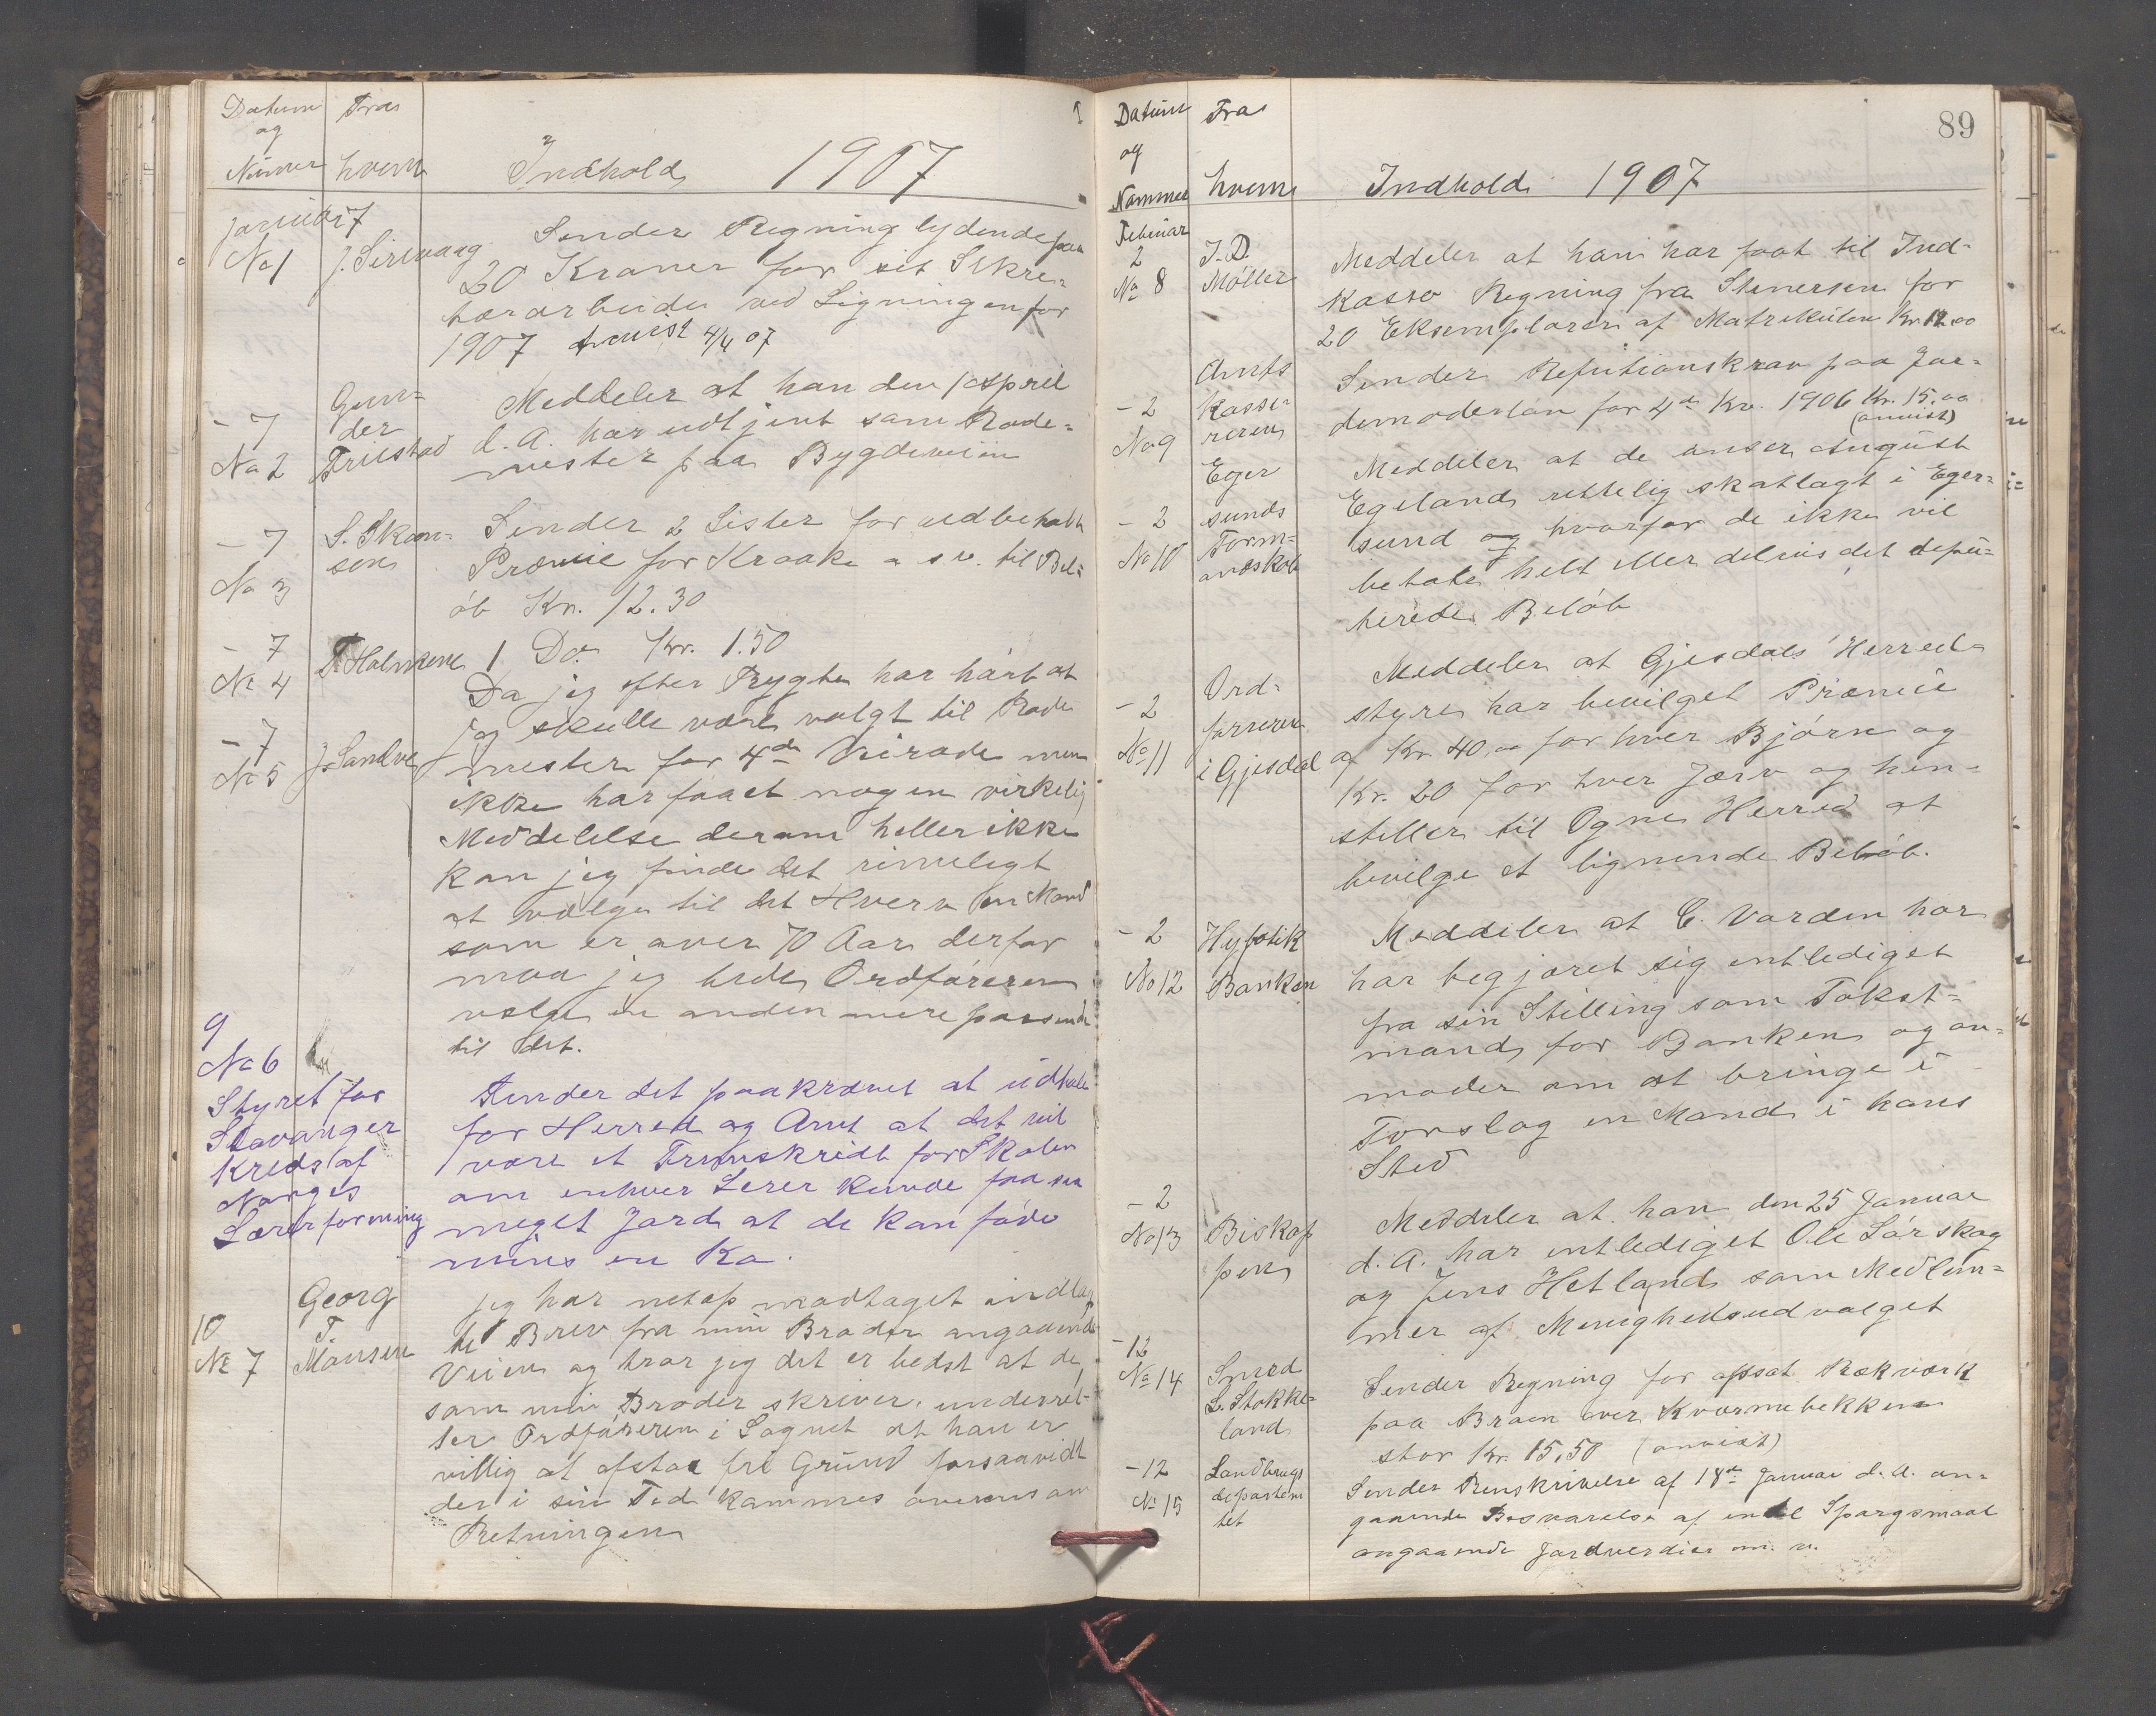 Datum
og
Numer
Fra
hvem
Indhold 1907
Januar 7
No 1
J. Sirevaag
Sender Regning lydende paa
20 Kroner for sit Sekre-
tærarbeide ved Ligningen for
1907 anvist 4/4 07
- 7
No 2
Gun-
der
Fuestad
Meddeler at han den 1 April
d. A. har udtjent som Rode-
mester paa Bygdeveien
- 7
No 3
S. Skan-
sen
Sender 2 Lister for udbetalt
Præmie for Kraake o s v. til Bel-
øb Kr. 12.30
- 7
No 4
T Holmene
1 Do. Kr. 1.50
- 7
No 5
J. Sandve
Da jeg efter Rygte har hørt at
jeg skulle være valgt til Rode
mester for 4de Veirode men
ikke har faaet nogen virkelig
Meddelelse derom heller ikke
kan jeg finde det rimeligt
at vælge til det Hverv en Mand
som er over 70 Aar derfor
maa jeg bede Ordføreren
vælge en anden mere passende
til det.
9
No 6
Styret for
Stavanger
Kreds af
Norges
Lærerforening
Finder det paakrævet at udtale
for Herred og Amt at det vil
være et Fremskridt for Skolen
om enhver Lærer kunde faa saa
meget Jord at de kan føde
mins en Ko.
10
No 7
Georg
T.
Monsen
Jeg har netop modtaget indlag
te Brev fra min Broder angaaende
Veien og tror jeg det er bedst at de
som min Broder skriver, underret-
ter Ordføreren i Sognet at han er
villig at afstaa fri Grund forsaavidt
der i sin Tid kommes overens om
Retningen
89
Datum
og
Nommer
Fra
hvem
Indhold 1907
Februar
2
No 8
J. D.
Møller
Meddeler at han har faat til Ind-
kasso Regning fra Stenersen for
20 Eksemplarer af Matrikulen Kr. 12.00
- 2
No 9
Amts
kasse-
reren
Sender Refutionskrav paa Jor-
demoderløn for 4de Kv. 1906 Kr. 15.00
(anvist)
- 2
No 10
Eger
sunds
Form-
andskab
Meddeler at de anser August
Egeland rettelig skatlagt i Eger-
sund og hvorfor de ikke vil
betale helt eller delvis det depu-
terede Beløb
- 2
No 11
Ord-
føreren
i Gjesdal
Meddeler at Gjesdals Herred-
styre har bevilget Præmie
af Kr. 40.00 for hver Bjørn og
Kr. 20 for hver Jærv og hen-
stiller til Ogne Herred at
bevilge et lignende Beløb.
- 2
No 12
Hypotik
Banken
Meddeler at C. Varden har
har begjæret sig entlediget
fra sin Stilling som Takst-
mand for Banken og an-
moder om at bringe i
Forslag en Mand i hans
Sted
- 2
No 13
Biskop
pen
Meddeler at han den 25 Januar
d. A. har entlediget Ole Sørskog
og Jens Hetland som Medlem-
mer af Menighedsudvalget
- 12
No 14
Smed
L. Stokke-
land
Sender Regning for opsat Rækværk
paa Broen over Kværnebekken
stor Kr. 15.50 (anvist)
- 12
No 15
Landbrugs
departem
tet
Sender Renskrivelse af 18de Januar d. A. an-
gaaende Besvarelse af endel Spørgsmaal
angaaende Jordverdier m. v.